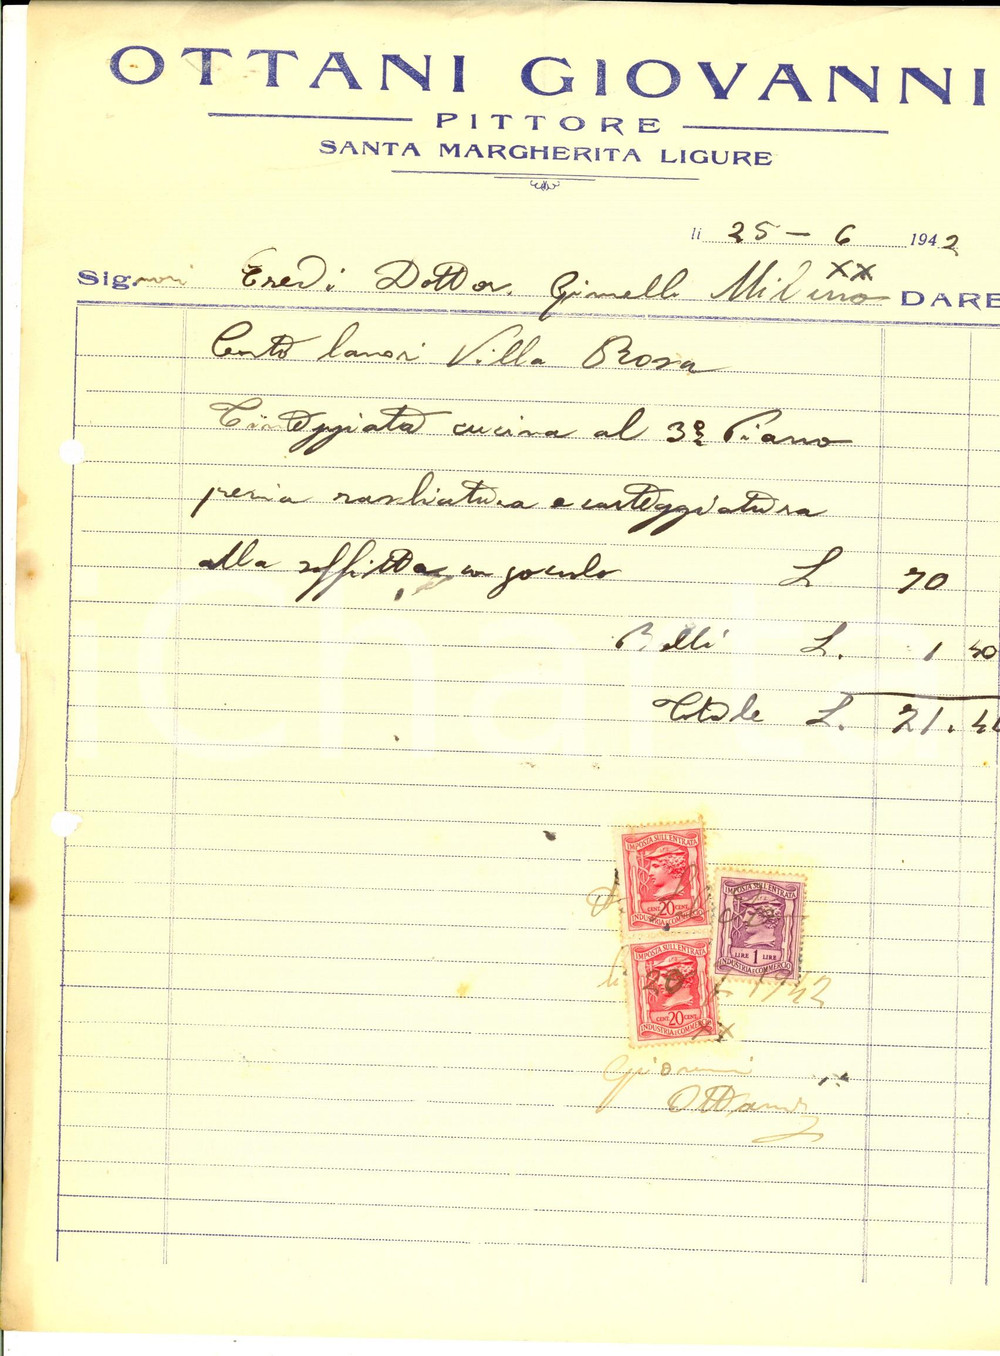 OTTANI GIOVANNI
PITTORE
SANTA MARGHERITA LIGURE
li 25 - 6 1942
XX
Signori Eredi Dottor. Gimelli Milano DARE
Conto lavori Villa Rosa
Tinteggiata cucina al 3º Piano
previa raschiatura e carteggiatura
alla soffitta con zoccolo L 70
Bolli L. 1 40
Totale L. 71.40
IMPOSTA SULL'ENTRATA
CENT. 20 CENT.
INDUSTRIA E COMMERCIO
IMPOSTA SULL'ENTRATA
LIRE 1 LIRE
INDUSTRIA E COMMERCIO
IMPOSTA SULL'ENTRATA
20
CENT. 20 CENT.
INDUSTRIA E COMMERCIO
li 1942
XX
Giovanni
Ottani